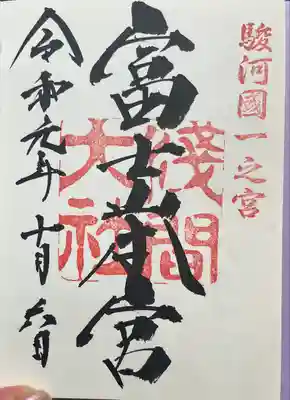 駿河國一之宮
富士本宮
淺間
大社
令和元年十月六日